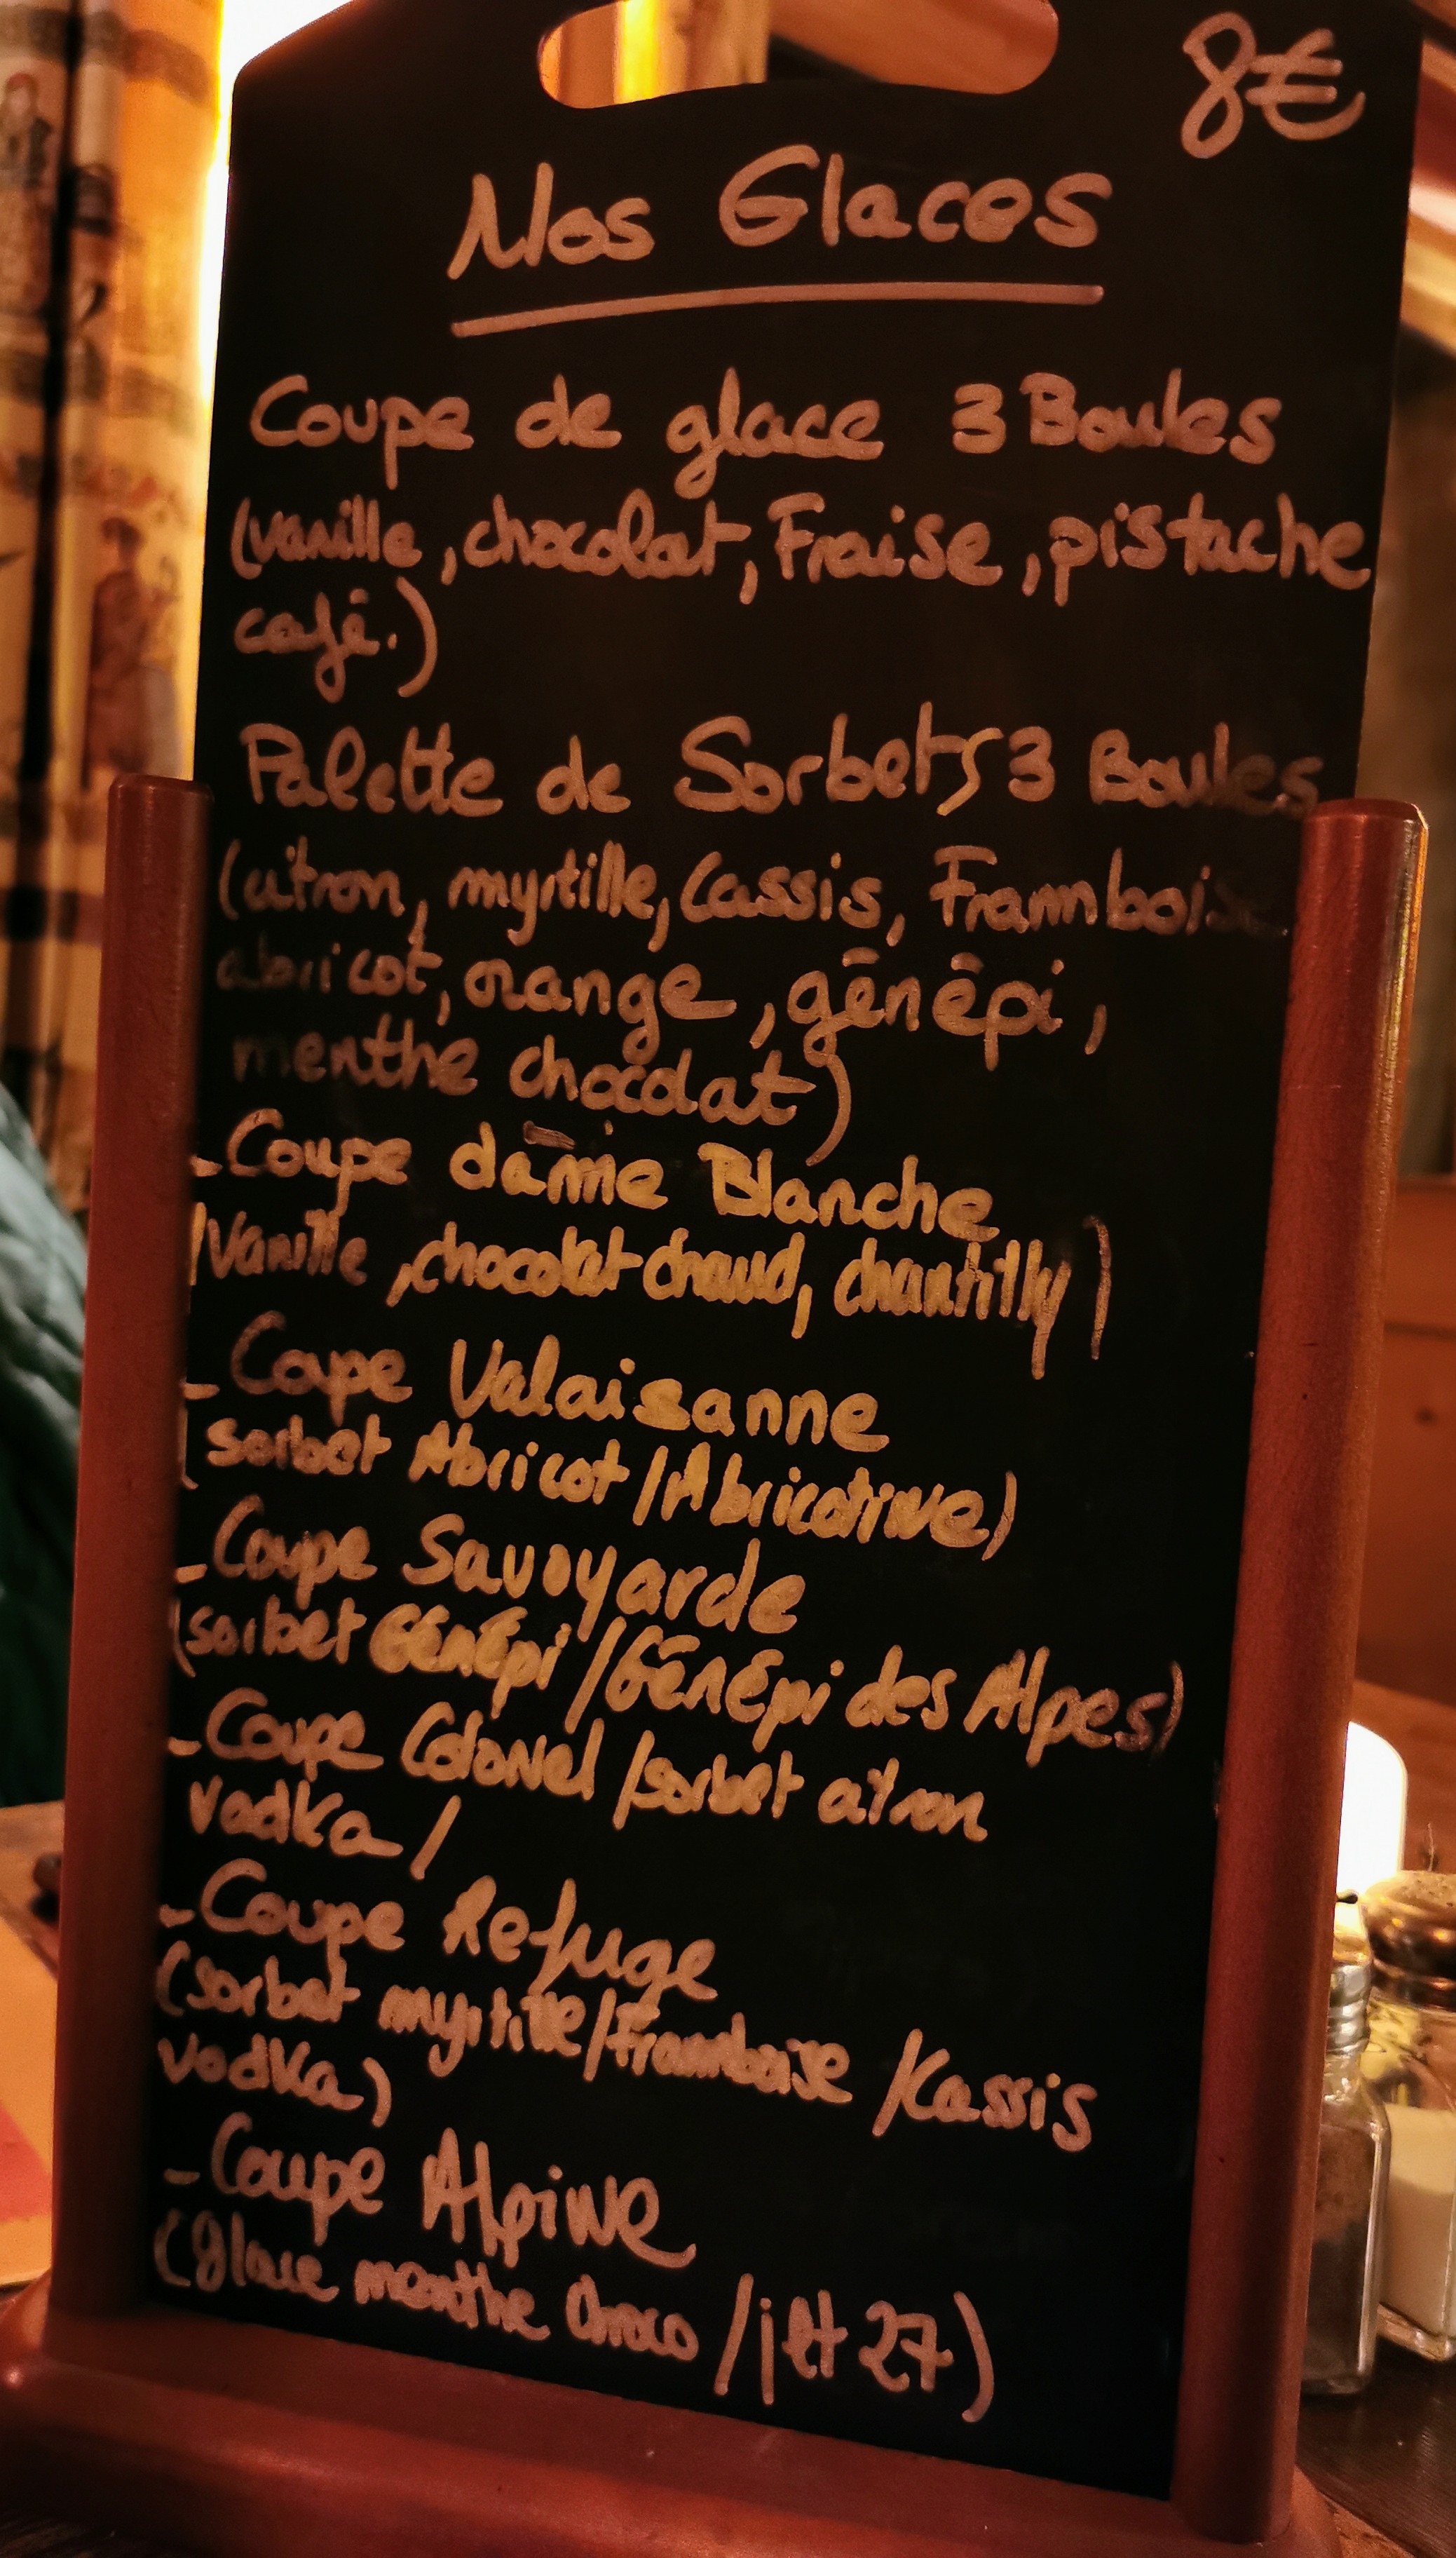 8€
Nos Glaces
Coupe de glace 3 Boules
(vanille, chocolat, Fraise, pistache
café.)
Palette de Sorbets 3 Boules
(citron, myrtille, Cassis, Framboise
abricot, orange, génépi,
menthe chocolat)
_Coupe dame Blanche
(Vanille, chocolat chaud, chantilly)
_Coupe Valaisanne
(sorbet Abricot/Abricotine)
_Coupe Savoyarde
(sorbet GÉNÉpi/GÉNÉpi des Alpes)
_Coupe Colonel /sorbet citron
vodka/
_Coupe Refuge
(sorbet myrtille/Framboise/Kassis
vodka)
_Coupe Alpine
(glace menthe choco/jet 27)